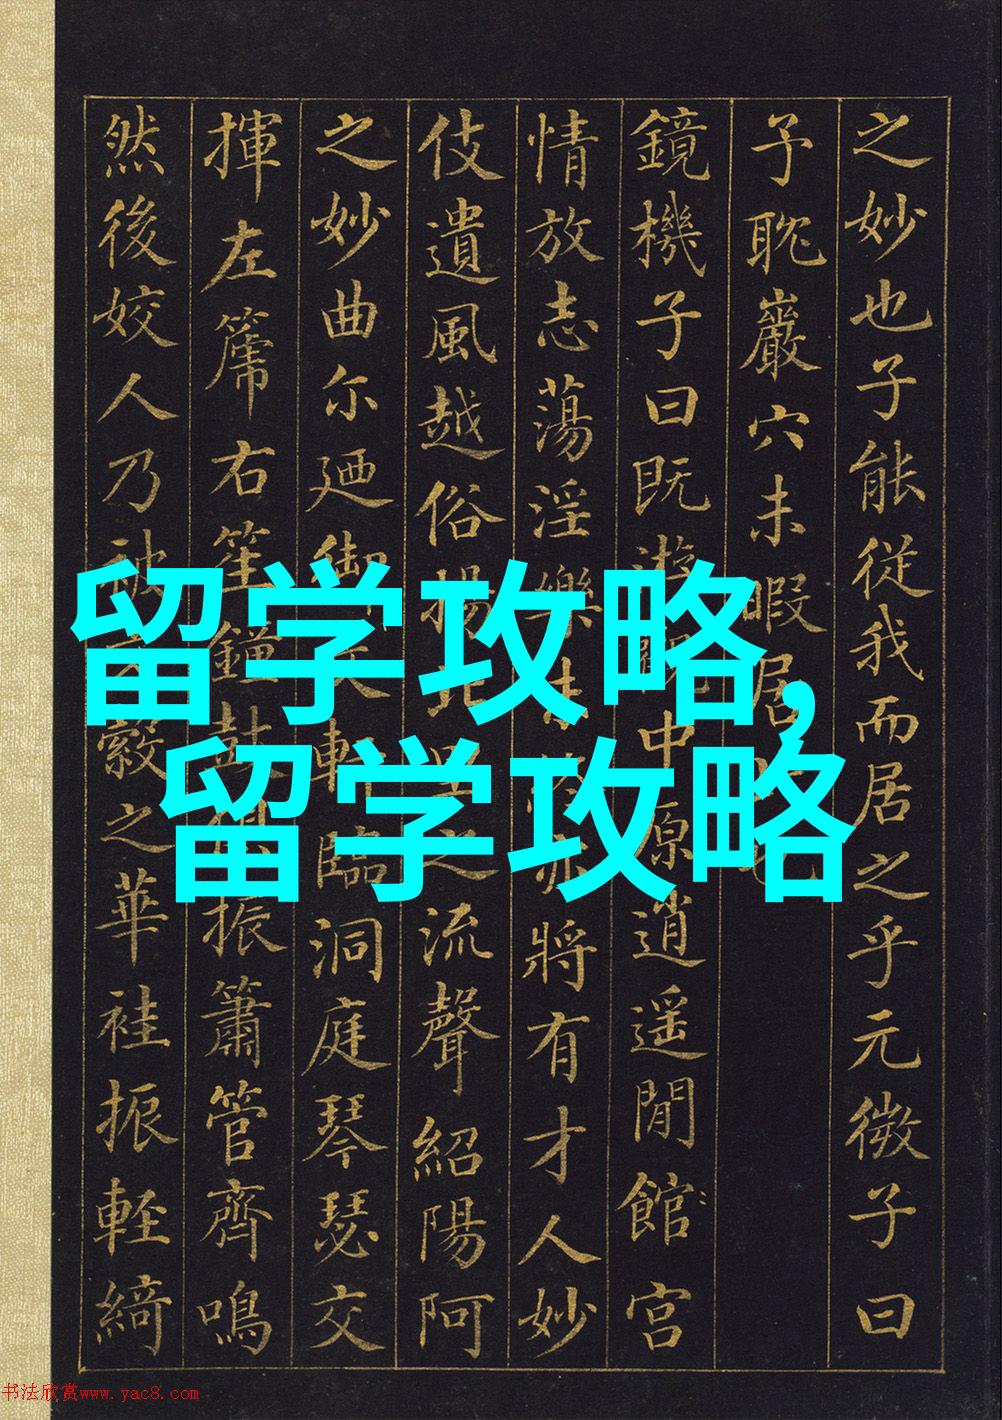 之妙也子能從我而居之乎元微子曰
予耽巖穴未暇居
鏡機子曰既遊中原逍遥閒館宮
情放志蕩淫樂未亦將有才人妙
伎遺風越俗揚北之流聲紹陽阿
之妙曲尔廼御軒臨洞庭琴瑟交
揮左篪右笙鐘鼓振簫管齊鳴
然後姣人乃被縠之華袿振輕綺
留学攻略,
留学攻略
书法欣赏www.yac8.com